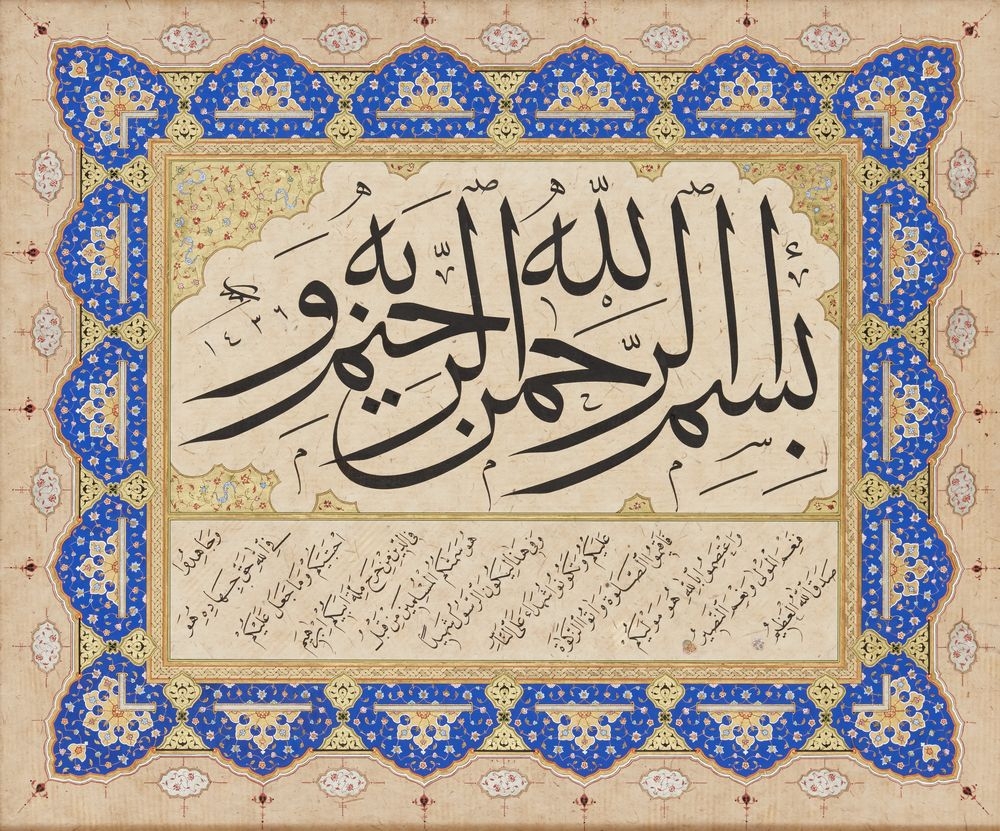 بسم الله الرحمن الرحيم وبه
١٤٣٦
وجاهدوا
في الله حق جهاده هو
اجتبيكم وما جعل عليكم
في الدين من حرج ملة ابيكم ابرهيم
هو سميكم المسلمين من قبل
وفي هذا ليكون الرسول شهيدا
عليكم وتكونوا شهداء على الناس
فاقيموا الصلوة واتوا الزكوة
واعتصموا بالله هو موليكم
فنعم المولى ونعم النصير
صدق الله العظيم